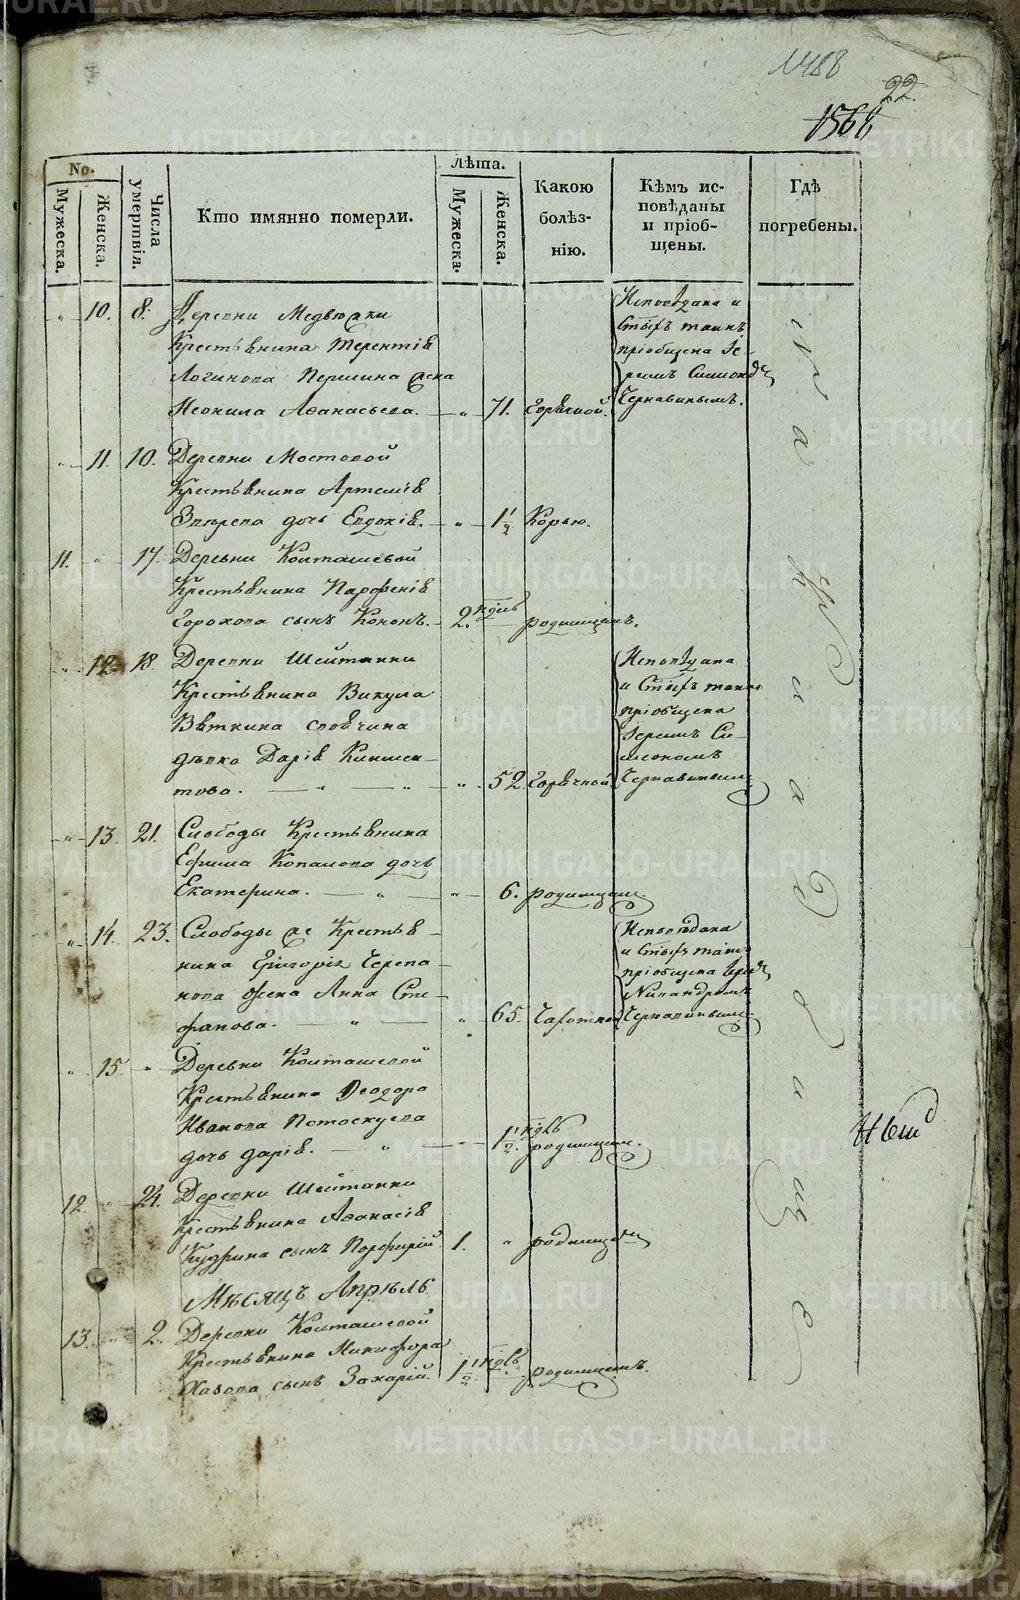 1488
22.
1568
No.
Мужеска.
Женска.
Числа умертвія.
Кто имянно померли.
Лѣта.
Мужеска.
Женска.
Какою болѣз-
нію.
Кѣмъ ис-
повѣданы
и пріоб-
щены.
Гдѣ
погребены.
10. 8. Деревни Медведки
Крестьянина Терентія
Логинова Першина жена
Неонила Аѳанасьева. 71. Горячкой.
Исповѣдана и
Стыхъ таинъ
пріобщена Іе-
реемъ Симеономъ
Чернавинымъ.
11. 10. Деревни Мостовой
Крестьянина Артемія
дочь Евдокія. 1 1/2 Корью.
11. 17. Деревни Колташевой
Крестьянина Парфенія
Горохова сынъ Кононъ. 2. ндѣль родимцемъ.
12. 18. Деревни Шейтанки
Крестьянина Викула
Вяткина
дѣвка Дарія Климен-
това. 52. Горячкой.
Исповѣдана
и Стыхъ таинъ
пріобщена
Іереемъ Си-
меономъ
Чернавинымъ
13. 21. Слободы Крестьянина
Ефима Копалова дочь
Екатерина. 6. родимцемъ
14. 23. Слободы же Крестья-
нина Григорія Черепа-
нова жена Анна Сте-
фанова. 65. Чахоткой
Исповѣдана
и Стыхъ таинъ
пріобщена
Никандромъ
Чернавинымъ
15. Деревни Колташевой
Крестьянина Ѳеодора
Иванова Потоскуева
дочь Дарія. 1 1/2. ндѣль родимцем.
12. 24. Деревни Шейтанки
Крестьянина Аѳанасія
Кудрина сынъ Порфирій. 1. родимцем
Мѣсяцъ Апрѣль
13. 2. Деревни Колташевой
Крестьянина Никифора
сынъ Захарій. 1 1/2 ндѣль родимцемъ.
На кладбище